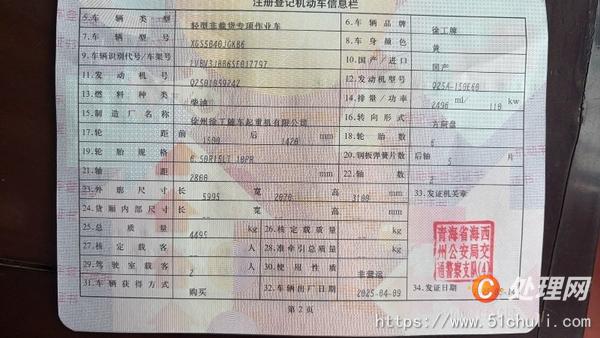 注册登记机动车信息栏
5.车辆类型 轻型非载货专项作业车 6.车辆品牌 徐工牌
7.车辆型号 XGS5040JGKB6 8.车身颜色 黄
9.车辆识别代号/车架号 10.国产/进口 国产
11.发动机号 12.发动机型号
13.燃料种类 柴油 14.排量/功率 ml/ 110 kw
15.制造厂名称 徐州徐工随车起重机有限公司 16.转向形式 方向盘
17.轮距 前 1590 后 1420 mm 18.轮胎数 6
19.轮胎规格 6.50R15LT 10PR 20.钢板弹簧片数 后轴 5 片
21.轴距 2800 mm 22.轴数 2
23.外廓尺寸 长 5995 宽 2070 高 3100 mm 33.发证机关章
24.货厢内部尺寸 长 宽 高 mm
25.总质量 4495 kg 26.核定载质量 kg
27.核定载客 人 28.准牵引总质量 kg
29.驾驶室载客 2 人 30.使用性质 非营运
31.车辆获得方式 购买 32.车辆出厂日期 2025-04-09 34.发证日期
青海省海西
州公安局交
通警察支队(4)
第2页
C处理网
https://www.51chuli.com